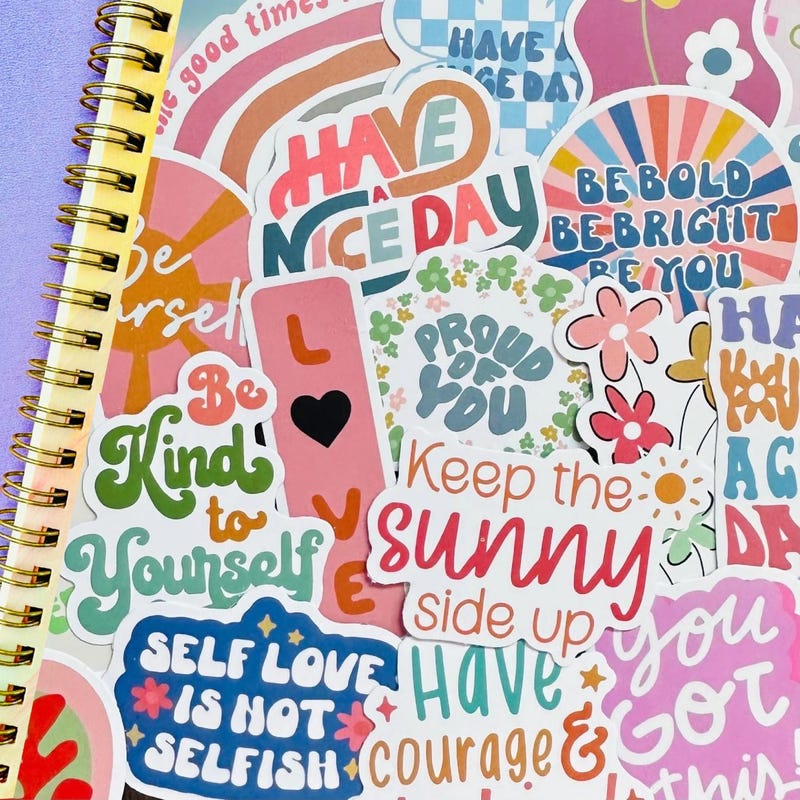 the good times
HAVE A
NICE DAY
HAVE
A
NICE DAY
BE BOLD
BE BRIGHT
BE YOU
Be
L
VE
PROUD
OF
YOU
HA
Be
Kind
to
Yourself
Keep the
sunny
side up
DA
SELF LOVE
IS NOT
SELFISH
Have
courage &
You
Got
this!